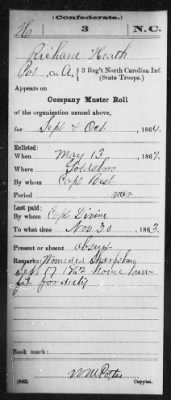 (Confederate.)
H 3 N.C.
Richard Heath
Co. A, 3 Reg't North Carolina Inf.
(State Troops.)
Appears on
Company Muster Roll
of the organization named above,
for Sept & Oct, 1864.
Enlisted:
When May 13, 186
Where Goldsboro
By whom Capt
Period war
Last paid:
By whom Capt
To what time Nov 30, 1863.
Present or absent Absent
Remarks: Wounded Sharpsburg
Sept 17 1862 home
fit for duty
Book mark:
Copyist.